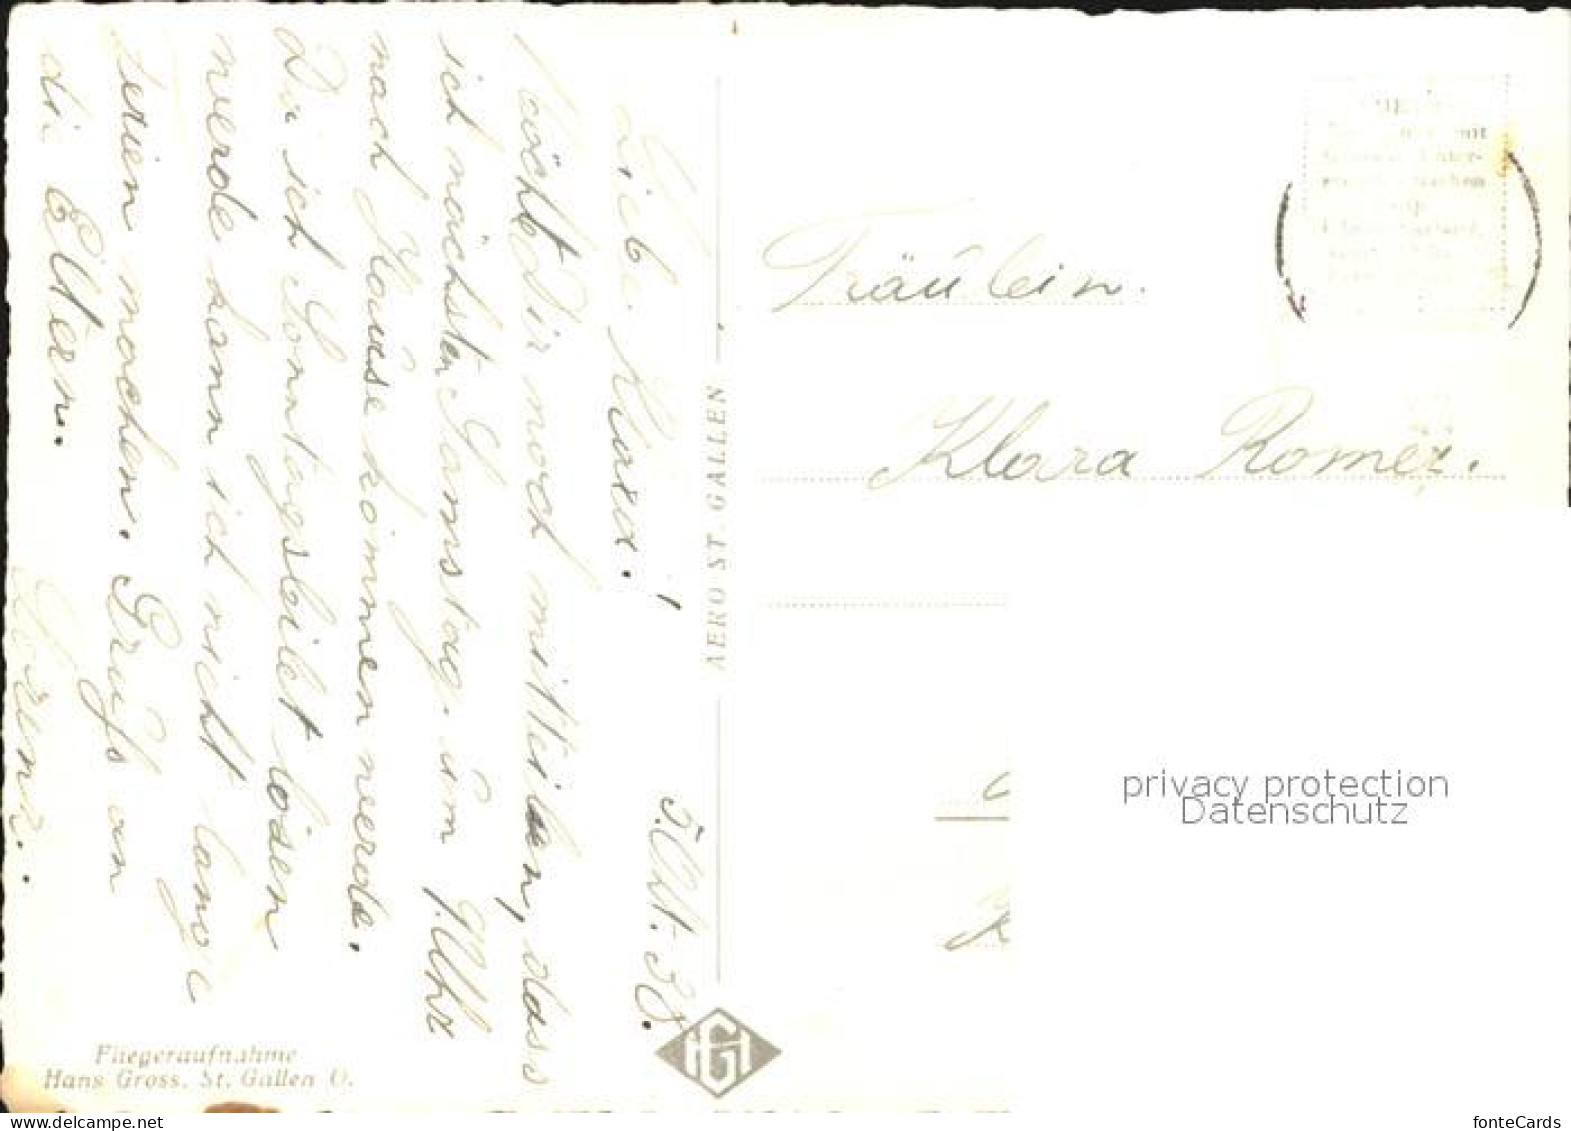 5. Okt. 38.
Liebe Klara!
Möchte Dir noch mitteilen, dass
ich nächsten Samstag um 9. Uhr
nach Hause kommen werde.
Da ich Sonntagsbilet lösen
werde kann ich nicht lange
Ferien machen. Gruss an
die Eltern.
Lorenz.
Fliegeraufnahme
Hans Gross, St. Gallen O.
AERO ST. GALLEN
HG
Fräulein.
Klara Romer.
privacy protection
Datenschutz
www.delcampe.net
fonteCards